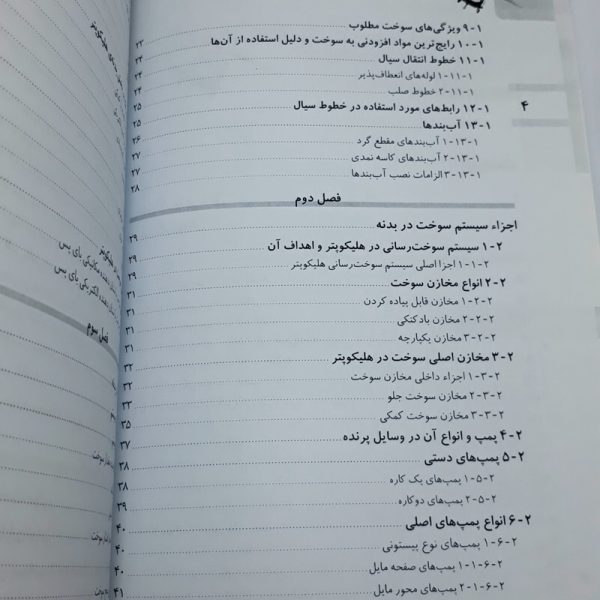 ۹-۱ ویژگی‌های سوخت مطلوب
۱۰-۱ رایج‌ترین مواد افزودنی به سوخت و دلیل استفاده از آن‌ها ۲۳
۱۱-۱ خطوط انتقال سیال ۲۴
۱-۱۱-۱ لوله‌های انعطاف‌پذیر ۲۴
۲-۱۱-۱ خطوط صلب ۲۴
۱۲-۱ رابط‌های مورد استفاده در خطوط سیال ۲۵
۱۳-۱ آب‌بندها ۲۵
۱-۱۳-۱ آب‌بندهای مقطع گرد ۲۶
۲-۱۳-۱ آب‌بندهای کاسه نمدی ۲۷
۳-۱۳-۱ الزامات نصب آب‌بندها ۲۷
۲۸
۴
فصل دوم
اجزاء سیستم سوخت در بدنه
۱-۲ سیستم سوخت‌رسانی در هلیکوپتر و اهداف آن ۲۹
۱-۱-۲ اجزا اصلی سیستم سوخت‌رسانی هلیکوپتر ۲۹
۲-۲ انواع مخازن سوخت ۳۱
۱-۲-۲ مخازن قابل پیاده کردن ۳۱
۲-۲-۲ مخازن بادکنکی ۳۱
۳-۲-۲ مخازن یکپارچه ۳۱
۳-۲ مخازن اصلی سوخت در هلیکوپتر ۳۲
۱-۳-۲ اجزاء داخلی مخازن سوخت ۳۲
۲-۳-۲ مخازن سوخت جلو ۳۳
۳-۳-۲ مخازن سوخت کمکی ۳۵
۴-۲ پمپ و انواع آن در وسایل پرنده ۳۷
۵-۲ پمپ‌های دستی ۳۸
۱-۵-۲ پمپ‌های یک کاره ۳۸
۲-۵-۲ پمپ‌های دوکاره ۳۹
۶-۲ انواع پمپ‌های اصلی ۴۰
۱-۶-۲ پمپ‌های نوع پیستونی ۴۰
۱-۱-۶-۲ پمپ‌های صفحه مایل ۴۰
۲-۱-۶-۲ پمپ‌های محور مایل ۴۱
فصل سوم